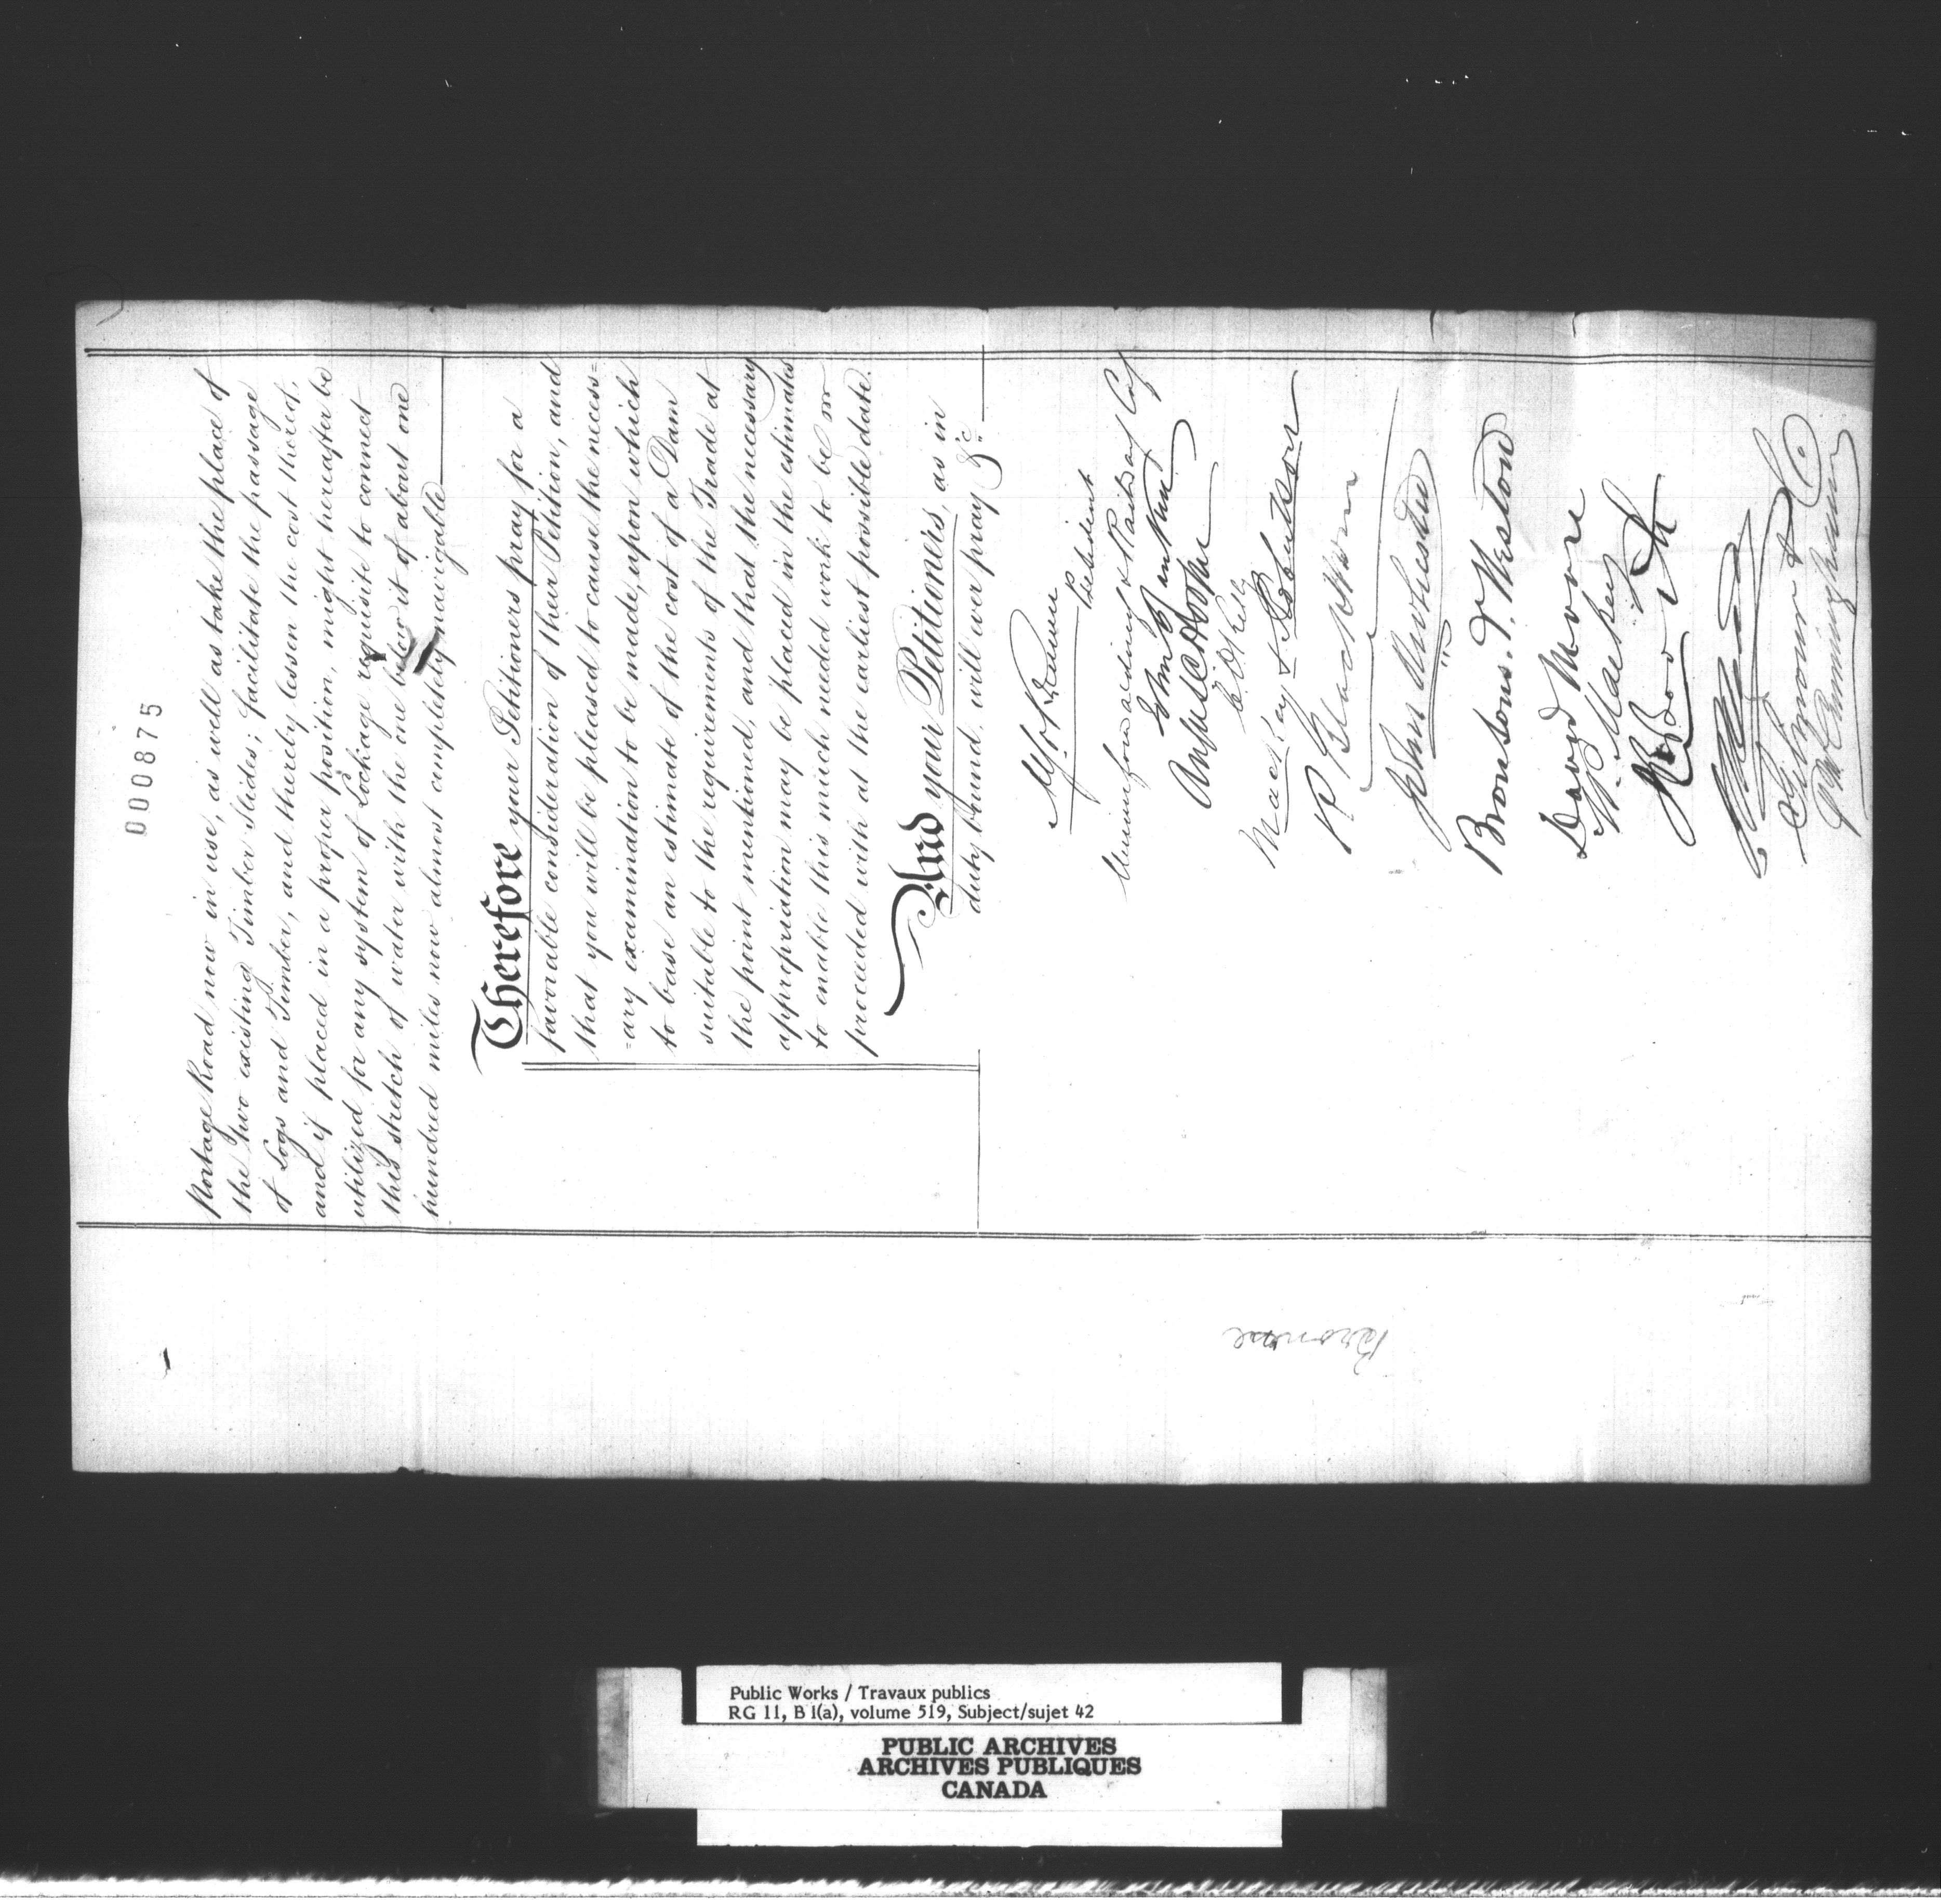 000875
Portage Road now in use, as well as take the place of
the two existing Timber Slides; facilitate the passage
of Logs and Timber, and thereby lessen the cost thereof,
and if placed in a proper position, might hereafter be
utilized for any system of Lockage requisite to connect
this stretch of water with the one below it of about one
hundred miles now almost completely navigable
Therefore your Petitioners pray for a
favorable consideration of their Petition, and
that you will be pleased to cause the necess=
=ary examination to be made, upon which
to base an estimate of the cost of a Dam
suitable to the requirements of the Trade at
the point mentioned, and that the necessary
appropriation may be placed in the estimates
to enable this much needed work to be
proceeded with at the earliest possible date.
And your Petitioners, as in
duty bound, will ever pray &c
President
John
Maclay &
R Blackburn
John Rochester
Bronsons & Weston
David Moore
W. Mackey
J R Booth
Gilmour & Co
Cunningham
Public Works / Travaux publics
RG 11, B 1(a), volume 519, Subject/sujet 42
PUBLIC ARCHIVES
ARCHIVES PUBLIQUES
CANADA